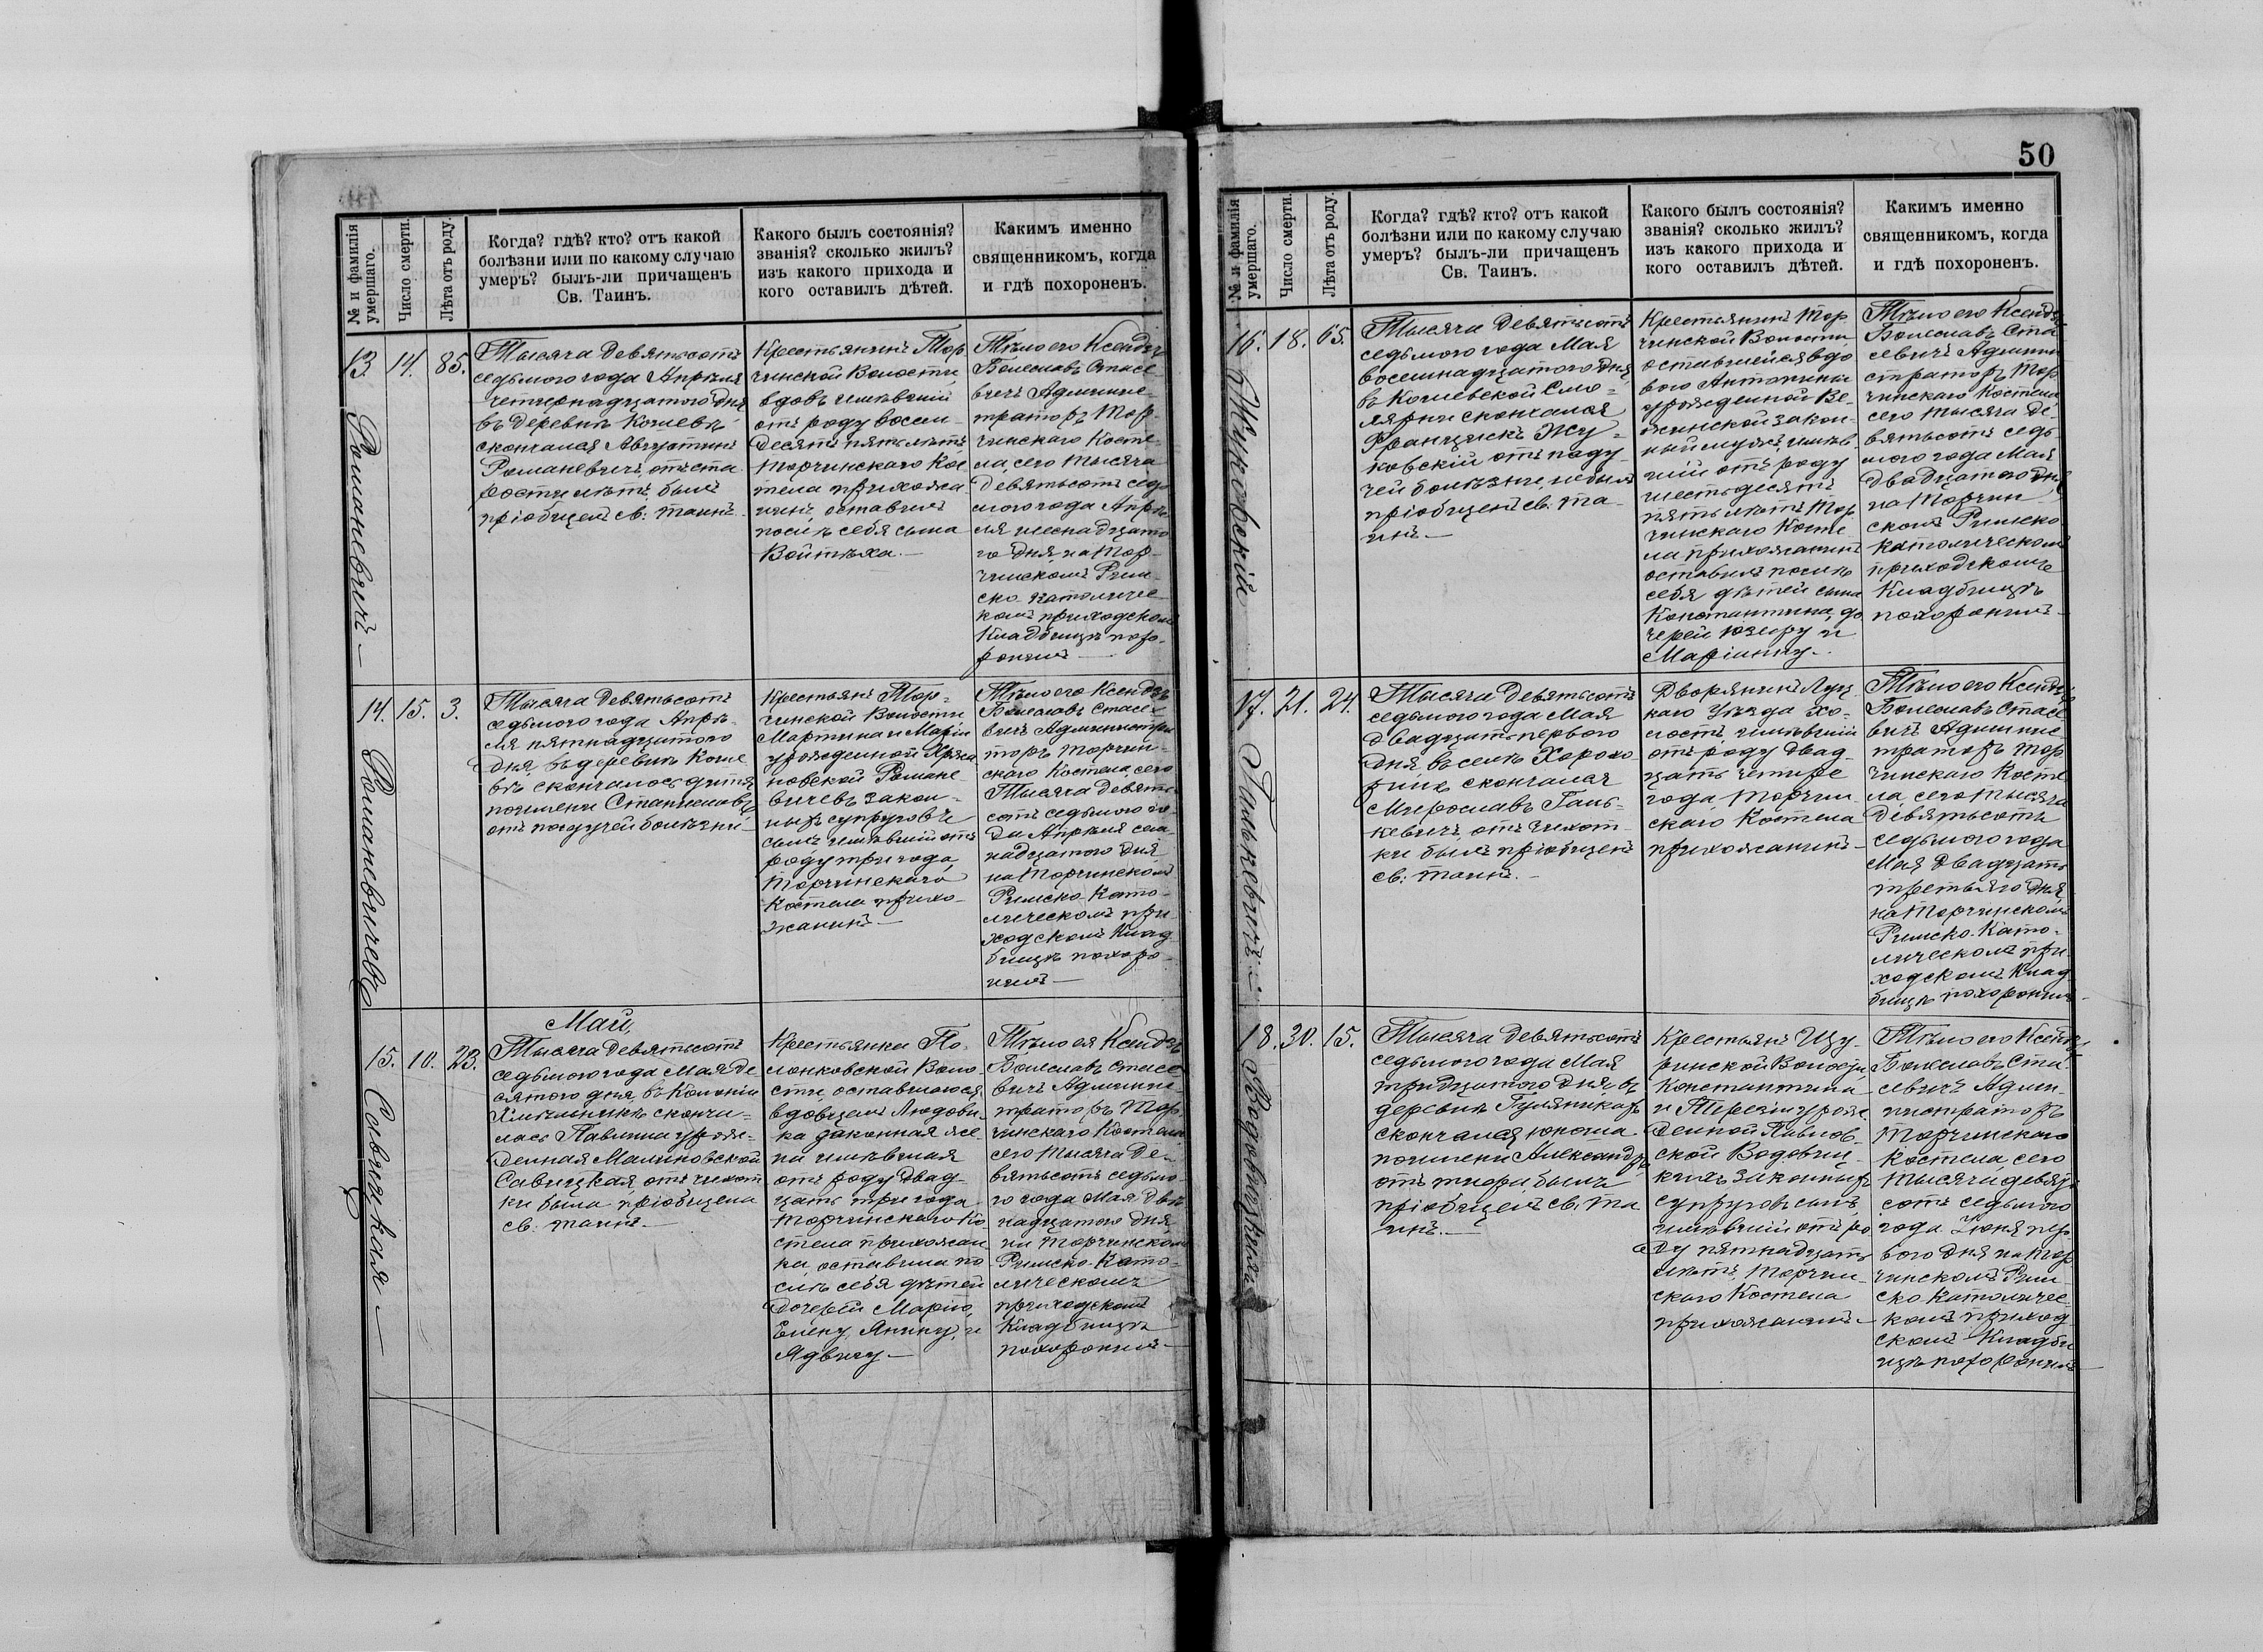 № и фамилія
умершаго.
Число смерти.
Лѣта отъ роду.
Когда? гдѣ? кто? отъ какой
болѣзни или по какому случаю
умеръ? былъ-ли причащенъ
Св. Таинъ.
Какого былъ состоянія?
званія? сколько жилъ?
изъ какого прихода и
кого оставилъ дѣтей.
Какимъ именно
священникомъ, когда
и гдѣ похороненъ.
13.
Романевичъ –
14.
85.
Тысяча девятьсотъ
седьмого года Апрѣля
четырнадцатого дня
въ деревнѣ Кошевѣ
скончался Августинъ
Романевичъ, отъ ста
рости лѣтъ, былъ
пріобщенъ св. таинъ.
Крестьянинъ Тор
чинской Волости,
вдовъ имѣвшій
отъ роду восем-
десятъ пять лѣтъ
Торчинскаго Кос
тела прихожа
нинъ оставилъ
послѣ себя сына
Войтѣха. –
Тѣло его Ксендзъ
Болеславъ Стасе
вичъ Админис-
траторъ Тор-
чинскаго Косте-
ла, сего тысяча
девятьсотъ седь
мого года Апрѣ
ля шеснадцато
го дня на Тор-
чинскомъ Рим-
ско католичес-
комъ приходскомъ
Кладбищѣ похо-
ронилъ –
14.
Романевичевъ
15.
3.
Тысяча девятьсотъ
седьмого года Апрѣ-
ля пятнадцатого
дня, въ деревнѣ Коше
вѣ скончалось дитя
по имени Станиславъ
отъ падучей болѣзни –
Крестьянъ Тор-
чинской Волости
Мартина и Маріи
урожденной
Романе
вичевъ закон-
ныхъ супруговъ
сынъ имѣвшій отъ
роду три года,
Торчинскаго
Костела прихо-
жанинъ –
Тѣло его Ксендзъ
Болеславъ Стасе-
вичъ Администра
торъ Торчин-
скаго Костела, сего
Тысяча девять
сотъ седьмого го-
да Апрѣля сем
надцатого дня
на Торчинскомъ
Римско-Като-
лическомъ при
ходскомъ Клад
бищѣ похоро-
нилъ –
Май,
15.
Савицкая –
10.
23.
Тысяча девятьсотъ
седьмого года Мая де
сятого дня, въ Колоніи
сконча-
лась Павлина урож-
денная Малиновской
Савицкая, отъ чахот
ки была пріобщена
св. таинъ. –
Крестьянка По-
лонковской Воло-
сти, оставшаяся
вдовцемъ Людови-
ка законная же-
на имѣвшая
отъ роду двад-
цать три года
Торчинскаго Ко
стела прихожан
ка, оставила по
слѣ себя дѣтей
дочерей Марію,
Елену, Янину, и
Ядвигу –
Тѣло ея Ксендзъ
Болеславъ Стасе
вичъ Админис-
траторъ Тор-
чинскаго Костела
сего тысяча де-
вятьсотъ седьмо-
го года Мая двѣ
надцатого дня
на Торчинскомъ
Римско-Като-
лическомъ
приходскомъ
Кладбищѣ
похоронилъ –
50
№ и фамилія
умершаго.
Число смерти.
Лѣта отъ роду.
Когда? гдѣ? кто? отъ какой
болѣзни или по какому случаю
умеръ? былъ-ли причащенъ
Св. Таинъ.
Какого былъ состоянія?
званія? сколько жилъ?
изъ какого прихода и
кого оставилъ дѣтей.
Какимъ именно
священникомъ, когда
и гдѣ похороненъ.
16.
Жуковскій
18.
65.
Тысяча девятьсотъ
седьмого года Мая
восемнадцатого дня,
въ Кошевской Смо-
лярни скончался
Францискъ Жу-
ковскій отъ паду
чей болѣзни, небылъ
пріобщенъ св. та-
инъ –
Крестьянинъ Тор
чинской Волости
оставшейся вдо
вою Антонины
урожденной Ве-
жинской закон-
ный мужъ, имѣв
шій отъ роду
шестьдесятъ
пять лѣтъ, Тор
чинскаго Косте
ла прихожанинъ
оставилъ послѣ
себя дѣтей сына
Константина, до
черей Юзефу и
Маріанну. –
Тѣло его Ксендзъ
Болеславъ Ста
севичъ Админи
страторъ Тор
чинскаго Костела
сего тысяча де-
вятьсотъ седь-
мого года Мая
двадцатого дня
на Торчин
скомъ Римско-
Католическомъ
приходскомъ
Кладбищѣ
похоронилъ –
17.
Ганкевичъ –
21.
24.
Тысяча девятьсотъ
седьмого года Мая
двадцать первого
дня въ селѣ Хорохо
ринѣ скончался
Мирославъ Гань-
кевичъ, отъ чахот
ки былъ пріобщенъ
св. таинъ. –
Дворянинъ Луц
каго Уѣзда хо-
лостъ, имѣвшій
отъ роду двад-
цать четыре
года, Торчин-
скаго Костела
прихожанинъ –
Тѣло его Ксендзъ
Болеславъ Стасе
вичъ Админис-
траторъ Тор
чинскаго Косте
ла, сего тысяча
девятьсотъ
седьмого года
Мая двадцать
третьяго дня
на Торчинскомъ
Римско-Като-
лическомъ при
ходскомъ Клад
бищѣ похоронилъ –
18.
Водовицкихъ
30.
15.
Тысяча девятьсотъ
седьмого года Мая
тридцатого дня, въ
деревнѣ Гуляникахъ
скончался юноша
по имени Александръ
отъ тифа, былъ
пріобщенъ св. та
инъ. –
Крестьянъ Щу-
ринской Волости,
Константина
и Терезіи урож
денной Павлов-
ской Водовиц-
кихъ законныхъ
супруговъ сынъ,
имѣвшій отъ ро
ду пятнадцать
лѣтъ, Торчин-
скаго Костела
прихожанинъ –
Тѣло его Ксендзъ
Болеславъ Ста
севичъ Адми-
нистраторъ
Торчинскаго
Костела, сего
тысяча девять
сотъ седьмого
года Іюня пер
вого дня на Тор
чинскомъ Рим-
ско Католичес-
комъ приход
скомъ Кладби
щѣ похоронилъ –